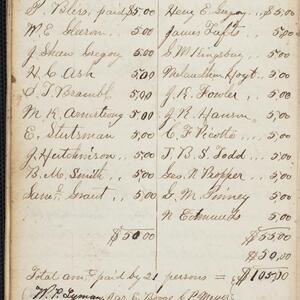 P. Bliss, paid $5.00
W. E. Gleason .. 5.00
J. Shaw Gregory .. 5.00
H. C. Ash .. 5.00
S. T. Brambl. 5.00
M. K. Armstrong .. 5.00
E. Stutsman .. 5.00
J. Hutchinson .. 5.00
B. M. Smith .. 5.00
Grant .. 5.00
$50.00
Henry E. Gregory .. $5.00
James Tufts .. 5.00
G. W. Kingsbury .. 5.00
Melancthon Hoyt .. 5.00
J. R. Fowler .. 5.00
J. R. Hanson .. 5.00
5.00
J. B. S. Todd .. 5.00
Geo. N. Propper .. 5.00
G. M. Pinney 5.00
N Edmunds .. 5.00
$55.00
$50.00
Total amt. paid by 21 persons = $105.00
W. P. Lyman,